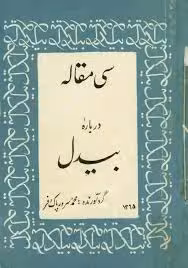 سی مقاله
دربارهٔ
بیدل
گردآورنده: محمد سرور پاک فر
۱۳۶۵